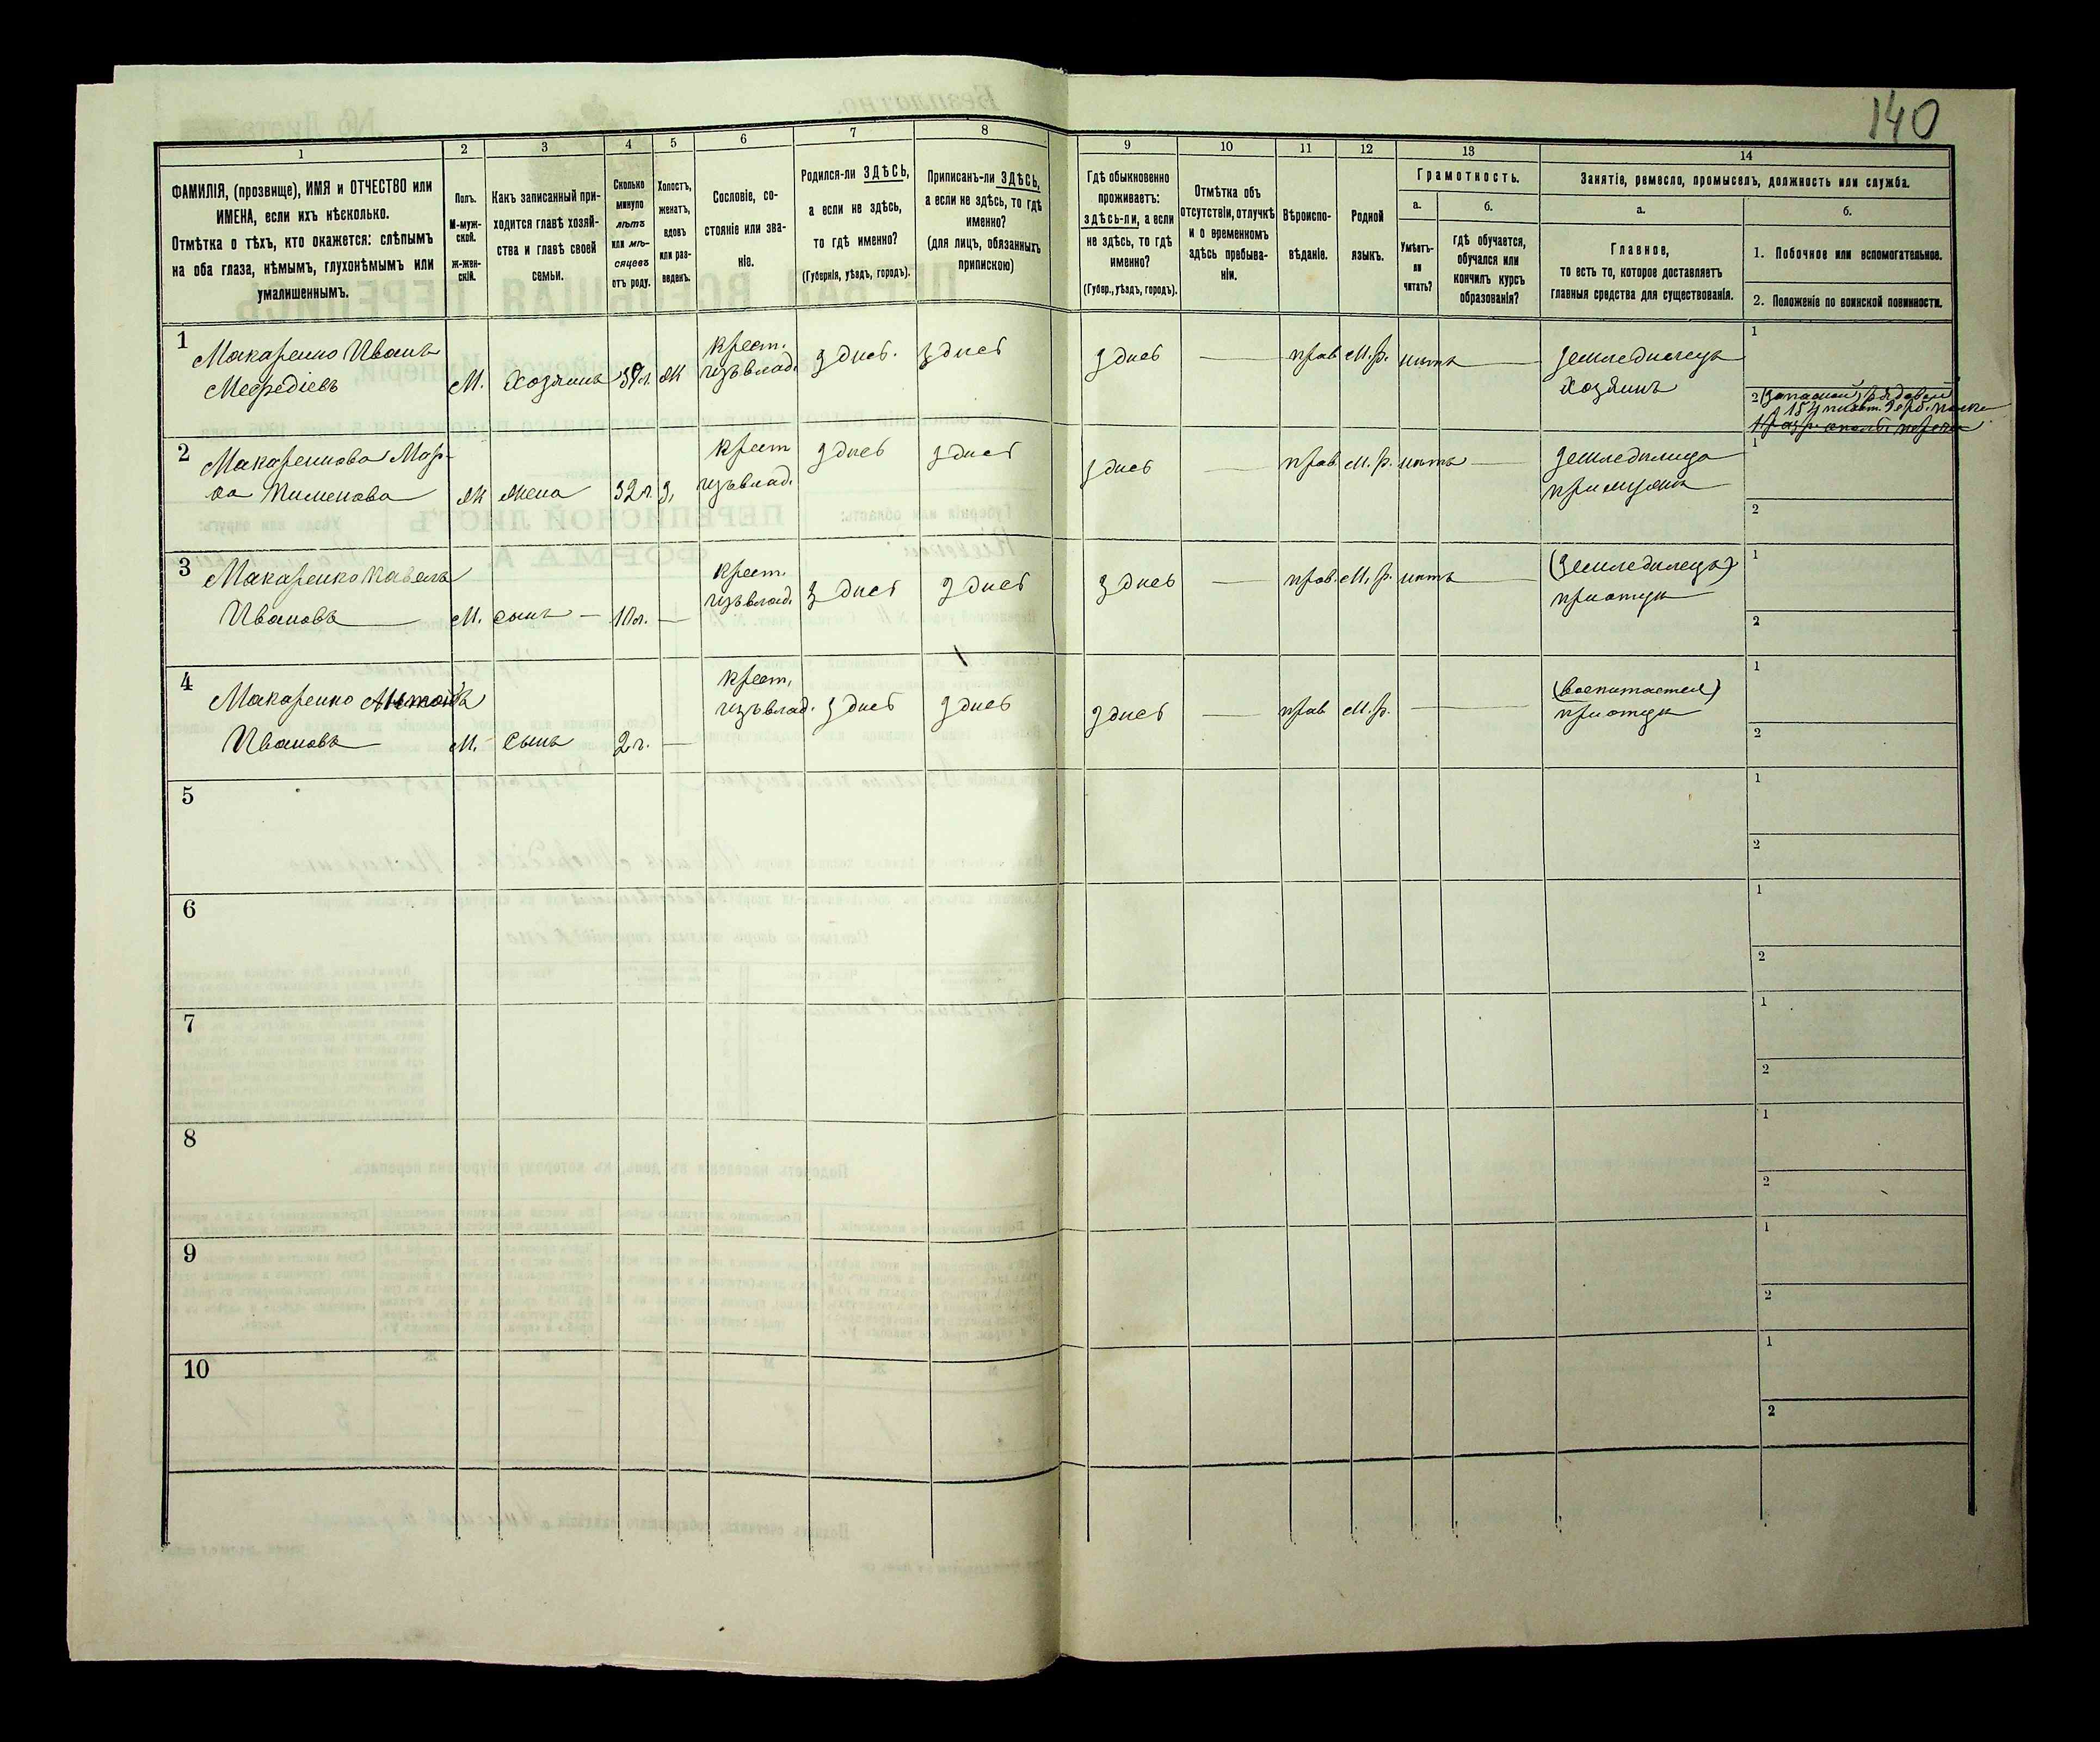 140
1
2
3
4
5
6
7
8
9
10
11
12
13
14
ФАМИЛІЯ, (прозвище), ИМЯ и ОТЧЕСТВО или
ИМЕНА, если ихъ нѣсколько.
Отмѣтка о тѣхъ, кто окажется: слѣпымъ
на оба глаза, нѣмымъ, глухонѣмымъ или
умалишеннымъ.
Полъ.
М-муж-
ской.
Ж-жен-
скій.
Какъ записанный при-
ходится главѣ хозяй-
ства и главѣ своей
семьи.
Сколько
минуло
лѣтъ
или мѣ-
сяцевъ
отъ роду.
Холостъ,
женатъ,
вдовъ
или раз-
веденъ.
Сословіе, со-
стояніе или зва-
ніе.
Родился-ли ЗДѢСЬ,
а если не здѣсь,
то гдѣ именно?
(Губернія, уѣздъ, городъ).
Приписанъ-ли ЗДѢСЬ,
а если не здѣсь, то гдѣ
именно?
(для лицъ, обязанныхъ
припискою)
Гдѣ обыкновенно
проживаетъ:
здѣсь-ли, а если
не здѣсь, то гдѣ
именно?
(Губер., уѣздъ, городъ).
Отмѣтка объ
отсутствіи, отлучкѣ
и о временномъ
здѣсь пребыва-
ніи.
Вѣроиспо-
вѣданіе.
Родной
языкъ.
Грамотность.
а.
Умѣетъ-
ли
читать?
б.
гдѣ обучается,
обучался или
кончилъ курсъ
образованія?
Занятіе, ремесло, промыселъ, должность или служба.
а.
Главное,
то есть то, которое доставляетъ
главныя средства для существованія.
б.
1. Побочное или вспомогательное.
2. Положеніе по воинской повинности.
1
Макаренко Иванъ
Мефедіевъ
М.
Хозяинъ
Ж
Крест.
изъ влад.
здѣсь.
здѣсь
здѣсь
прав
М.р.
нѣтъ
земледѣлецъ
Хозяинъ
1
2
2
Макаренкова Мар-
ѳа Пименова
Ж
жена
32 г.
з.
Крест
изъ влад.
здѣсь
здѣсь
здѣсь
прав.
М.р.
нѣтъ
земледѣлица
при мужѣ
1
2
3
Макаренко Павелъ
Ивановъ
М.
сынъ
10 л.
Крест.
изъ влад.
здѣсь
здѣсь
здѣсь
прав.
М.р.
нѣтъ
(земледѣлецъ)
при отцѣ
1
2
4
Макаренко
Ивановъ
М.
Сынъ
2 г.
Крест.
изъ влад.
здѣсь
здѣсь
здѣсь
прав
М.р.
при отцѣ
1
2
5
1
2
6
1
2
7
1
2
8
1
2
9
1
2
10
1
2